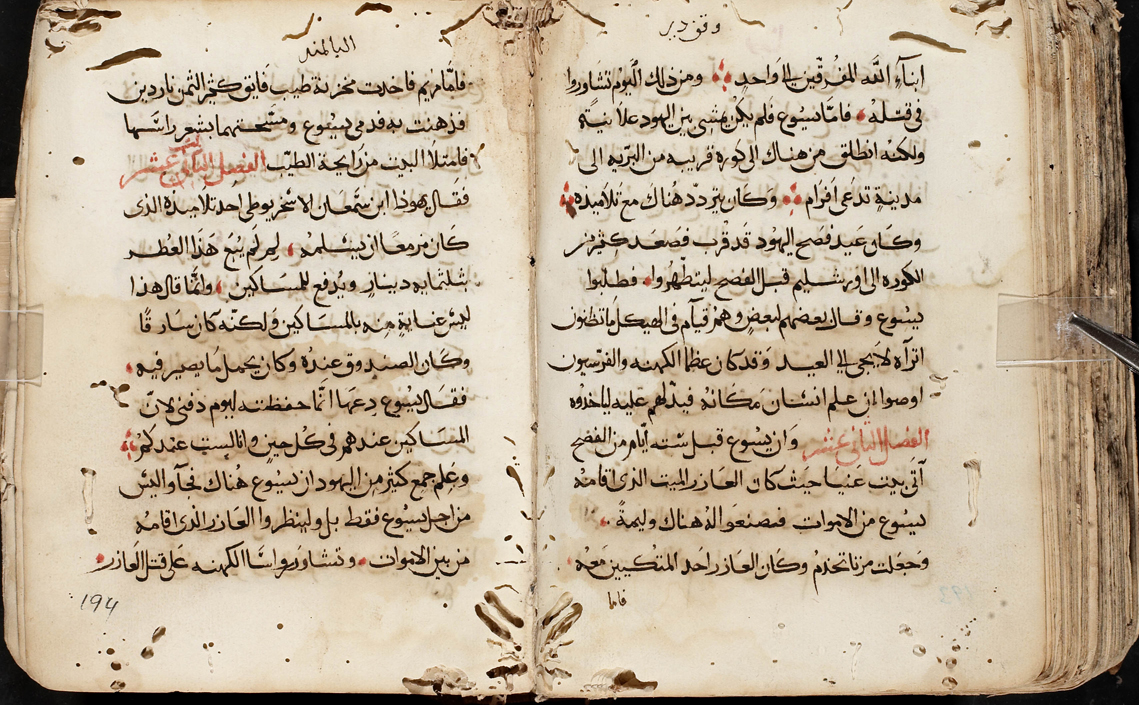 وقف دير
ابناء الله المفرقين الى واحد ومن ذلك اليوم تشاوروا
في قتله فاما يسوع فلم يكن يمشي بين اليهود علانية
ولكنه انطلق من هناك الى كوره قريبه من البريه الى
مدينة تدعى افرام وكان يتردد هناك مع تلاميذه
وكان عيد فصح اليهود قد قرب فصعد كثير من
الكوره الى اورشليم قبل الفصح ليتطهروا فطلبوا
يسوع وقال بعضهم لبعض وهم قيام في الهيكل ما تظنون
اتراه لا يجي الى العيد وقد كان عظما الكهنه والفرسيون
اوصوا ان علم انسان مكانه فيدلهم عليه لياخذوه
الفصل الثاني عشر وان يسوع قبل سته ايام من الفصح
اتى بيت عنيا حيث كان العازر الميت الذي اقامه
يسوع من الاموات فصنعوا له هناك وليمة
وجعلت مرتا تخدم وكان العازر احد المتكيين معه
فاما
البالمند
فاما مريم فاخذت مخزنة طيب فايق كثير الثمن ناردين
فدهنت به قدمي يسوع ومسحتهما بشعر راسها
فامتلا البيت من رايحة الطيب الفصل عشر
فقال يهوذا ابن سمعان الاسخريوطي احد تلاميذه الذي
كان مزمعا ان يسلمه لم لم يبع هذا العطر
بثلثمايه دينار ويدفع للمساكين وانما قال هذا
ليس عناية منه بالمساكين ولكنه كان سارقا
وكان الصندوق عنده وكان يحمل ما يصير فيه
فقال يسوع دعها انما حفظته ليوم دفني لان
المساكين عندهم في كل حين وانا لست عندكم
وعلم جمع كثير من اليهود ان يسوع هناك فجآوا ليس
من اجل يسوع فقط بل ولينظروا العازر الذي اقامه
من بين الاموات وتشاور رواسا الكهنه على قتل العازر
194